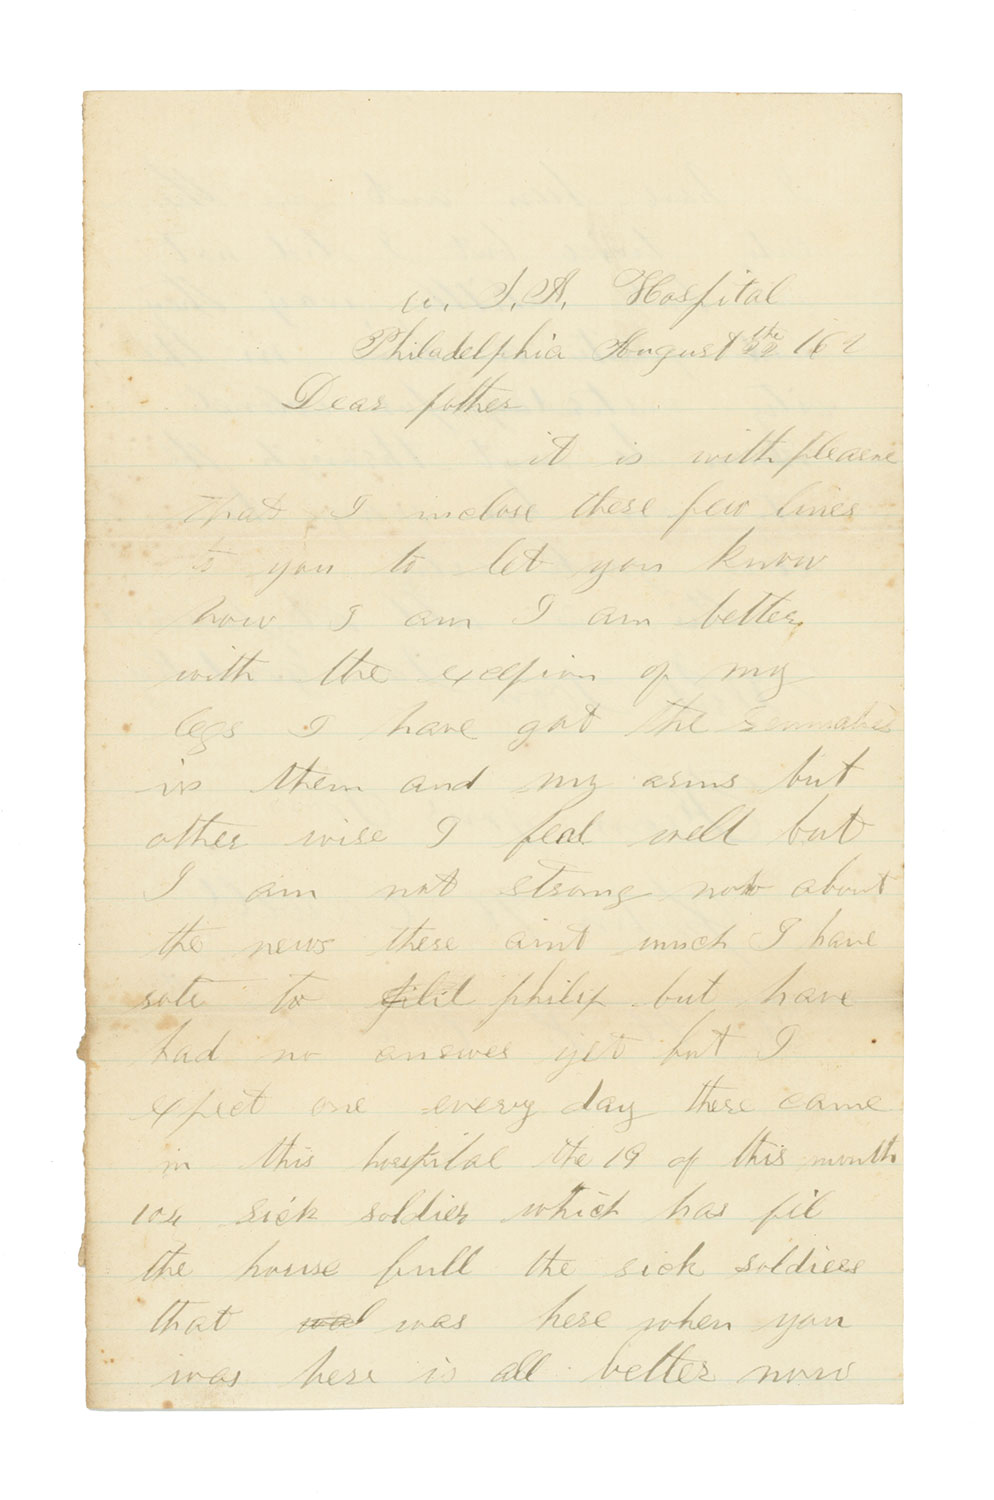 U. S. A. Hospital
Philadelphia August 22 the 162
Dear father
it is with pleasure
that I inclose these few lines
to you to let you know
how I am I am better
with the excepion of my
legs I have got the
in them and my arms but
other wise I feal well but
I am not strong now about
the news there aint much I have
rote to philip but have
had no answer yet but I
expect one every day there came
in this hospital the 19 of this month
104 sick soldier which has fil
the house full the sick soldiers
that was here when you
was here is all better now